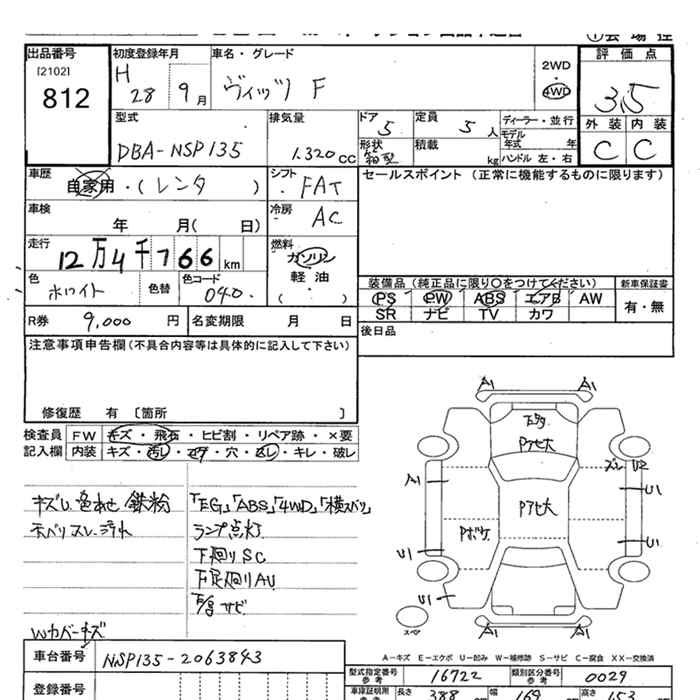 出品番号
[2102]
812
初度登録年月
H 28 9月
車名・グレード
ヴィッツ F
2WD
4WD
評価点
3.5
外装 内装
C C
型式
DBA-NSP135
排気量
1.320cc
ドア
5
形状
箱型
定員
5人
積載
kg
ディーラー・並行
モデル年式 年
ハンドル 左・右
車歴
自家用・(レンタ )
シフト
FAT
セールスポイント (正常に機能するものに限ります)
車検
年 月( 日)
冷房
AC
走行
12万4千766km
燃料
ガソリン
軽油
( )
色
ホワイト
色替
色コード
040
装備品(純正品に限り○をつけてください)
新車保証書
PS PW ABS エアB AW
SR ナビ TV カワ
有・無
R券 9,000円
名変期限 月 日
後日品
注意事項申告欄(不具合内容等は具体的に記入して下さい)
修復歴 有 〔箇所 〕
検査員
記入欄
FW キズ・飛石・ヒビ割・リペア跡・×要
内装 キズ・汚し・コゲ・穴・スレ・キレ・破レ
キズレ 色あせ 鉄粉
天ベリスレ・汚れ
「EG」「ABS」「4WD」「横スベリ」
ランプ点灯
下廻りSC
下足廻りAU
サビ
Wカバーキズ
A1 A1
Pアセ大
ズレ U2
A1
U1
Pアセ大
Pボケ
U1
U1
U1
スペア
A1 A1
A−キズ E−エクボ U−凹み W−補修跡 S−サビ C−腐食 XX−交換済
車台番号
NSP135-2063843
型式指定番号
参考
16722
類別区分番号
参考
0029
登録番号
車庫証明用
参考
長さ 388
幅 169
高さ 153